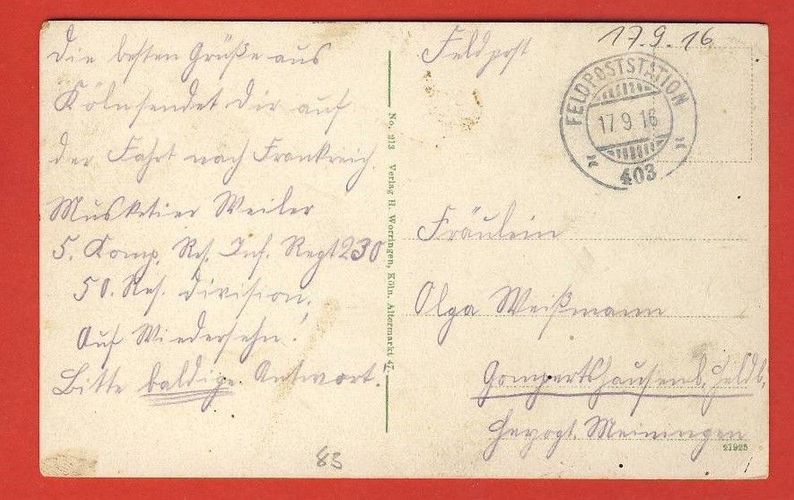 Die besten Grüße aus
Köln sendet Dir auf
der Fahrt nach Frankreich
Musketier Weiler
5. Komp. Res. Inf. Regt 230
50. Res. Division.
Auf Wiedersehn!
Bitte baldige Antwort.
83
No. 213 Verlag H. Worringen, Köln, Altermarkt 47.
Feldpost
17.9.16
FELDPOSTSTATION
17 9 16
403
Fräulein
Olga Weißmann
Gompertshausen b. Heldb.
Herzogt. Meiningen
21925